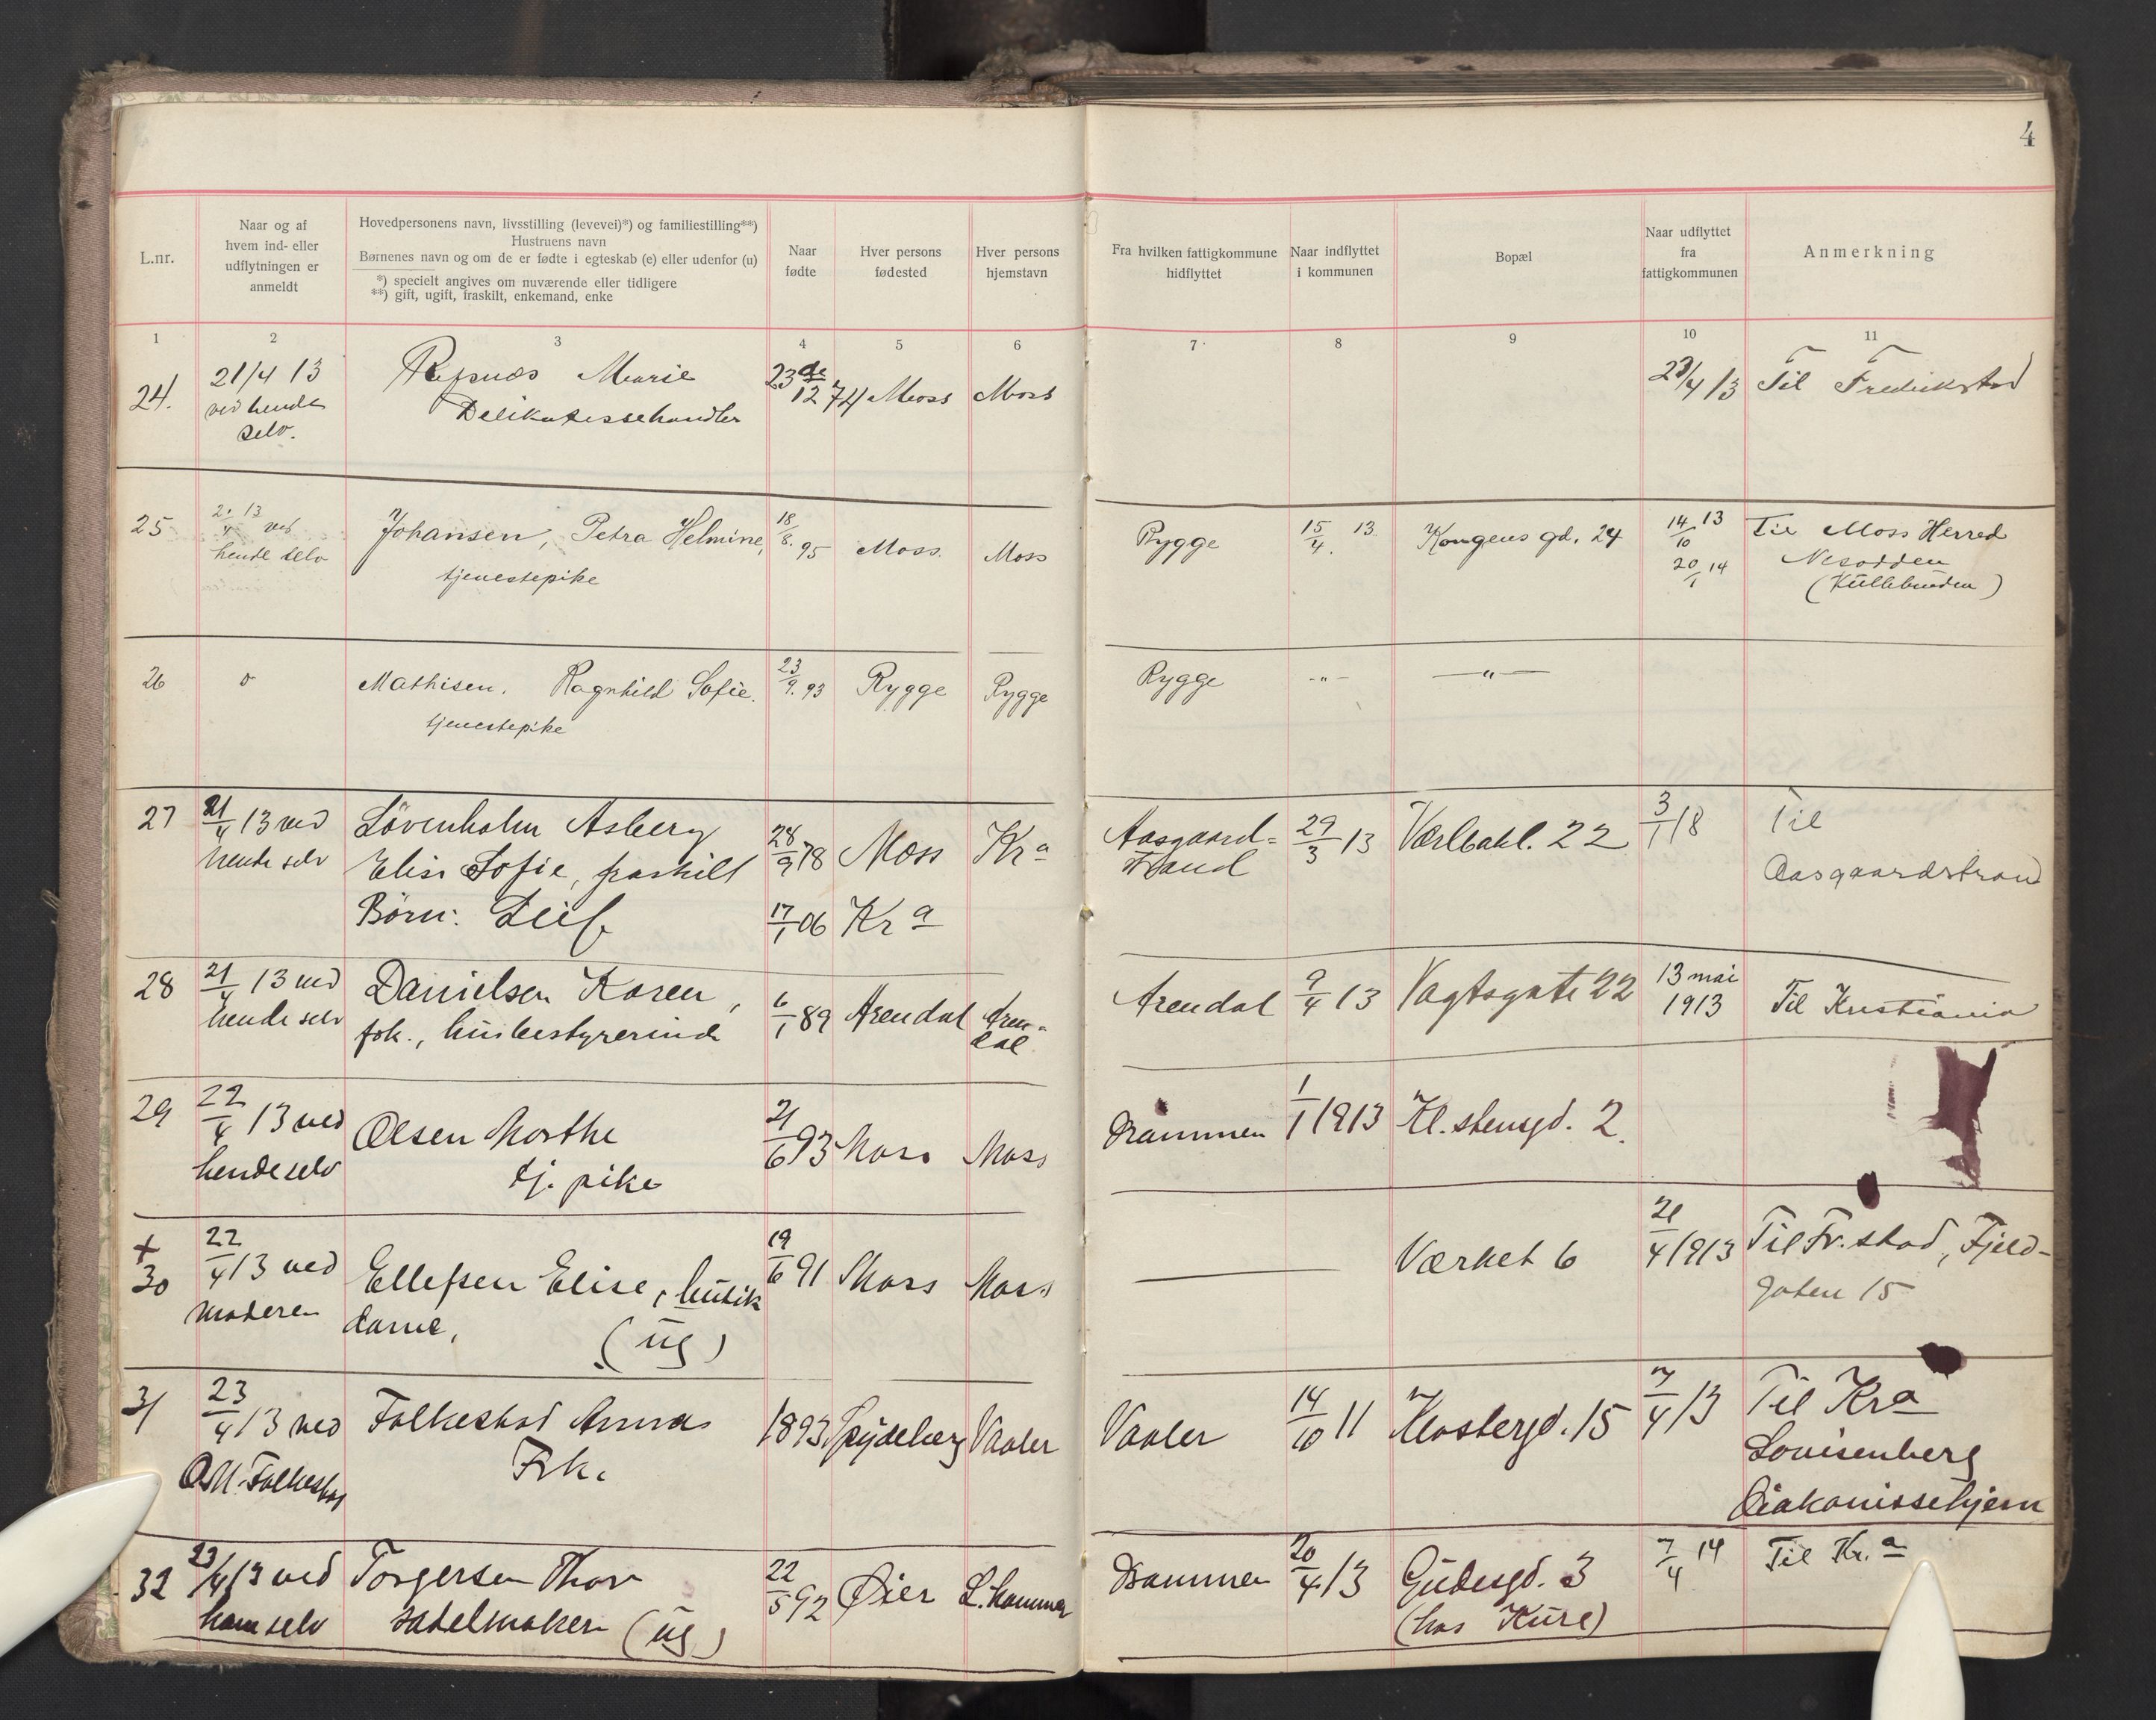 4
L.nr.
Naar og af
hvem ind- eller
udflytningen er
anmeldt
Hovedpersonens navn, livsstilling (levevei)*) og familiestilling**)
Hustruens navn
Børnenes navn og om de er fødte i egteskab (e) eller udenfor (u)
*) specielt angives om nuværende eller tidligere
**) gift, ugift, fraskilt, enkemand, enke
Naar
fødte
Hver persons
fødested
Hver persons
hjemstavn
Fra hvilken fattigkommune
hidflyttet
Naar indflyttet
i kommunen
Bopæl
Naar udflyttet
fra
fattigkommunen
Anmerkning
1 2 3 4 5 6 7 8 9 10 11
24. 21/4 13 Marie 23 de/12 74 Moss Moss 23/4 13 Til Fredrikstad
ved hende Delikatessehandler
selv.
25 21/4 13 ved Johansen, Petra Helmine, 18/8. 95 Moss. Moss Rygge 15/4. 13 Kongens gd. 24 14/10 13 Til Moss Herred
hende selv tjenestepike 20/1 14 Nesodden
(
26 Mathisen. Ragnhild Sofie. 23/9. 93 Rygge Rygge Rygge -"- -"-
tjenestepike
27 21/4 13 ved Lövenholm Asberg 28/9 78 Moss Kra Aasgaard= 29/3 13 Værlbakl. 22 3/1 18 Til
hende selv Elise Sofie, fraskilt strand Aasgaardstrand
Börn: Leif 17/1 06 Kra
28 21/4 13 ved Danielsen Karen, 6/1 89 Arendal Aren= Arendal 9/4 13 Vogtsgate 22 13 mai Til Kristiania
hende selv frk., husbestyrerinde dal 1913
29 22/4 13 ved Olsen Marthe 21/6 93 Moss Moss Drammen 1/1 1913 Kl. stensgd. 2.
hende selv tj. pike
+
30 22/4 13 ved Ellefsen Elise, butik 19/6 91 Moss Moss Værket 6 21/4 1913 Til Fr.stad, Fjeld-
moderen dame, (ug) gaten 15
31 23/4 13 ved Falkestad Anna 1893 Spydeberg Vaaler Vaaler 14/10 11 Klostergd. 15 7/4 13 Til Kra
O.M. Falkestad Frk. Lovisenberg
Diakonissehjem
32 23/4 13 ved Torgersen Thor 22/5 92 Øier L.hammer Drammen 20/4 13 Gudesgd. 3 7/4 14 Til Kr.a
ham selv sadelmaker (ug) (hos Kure)